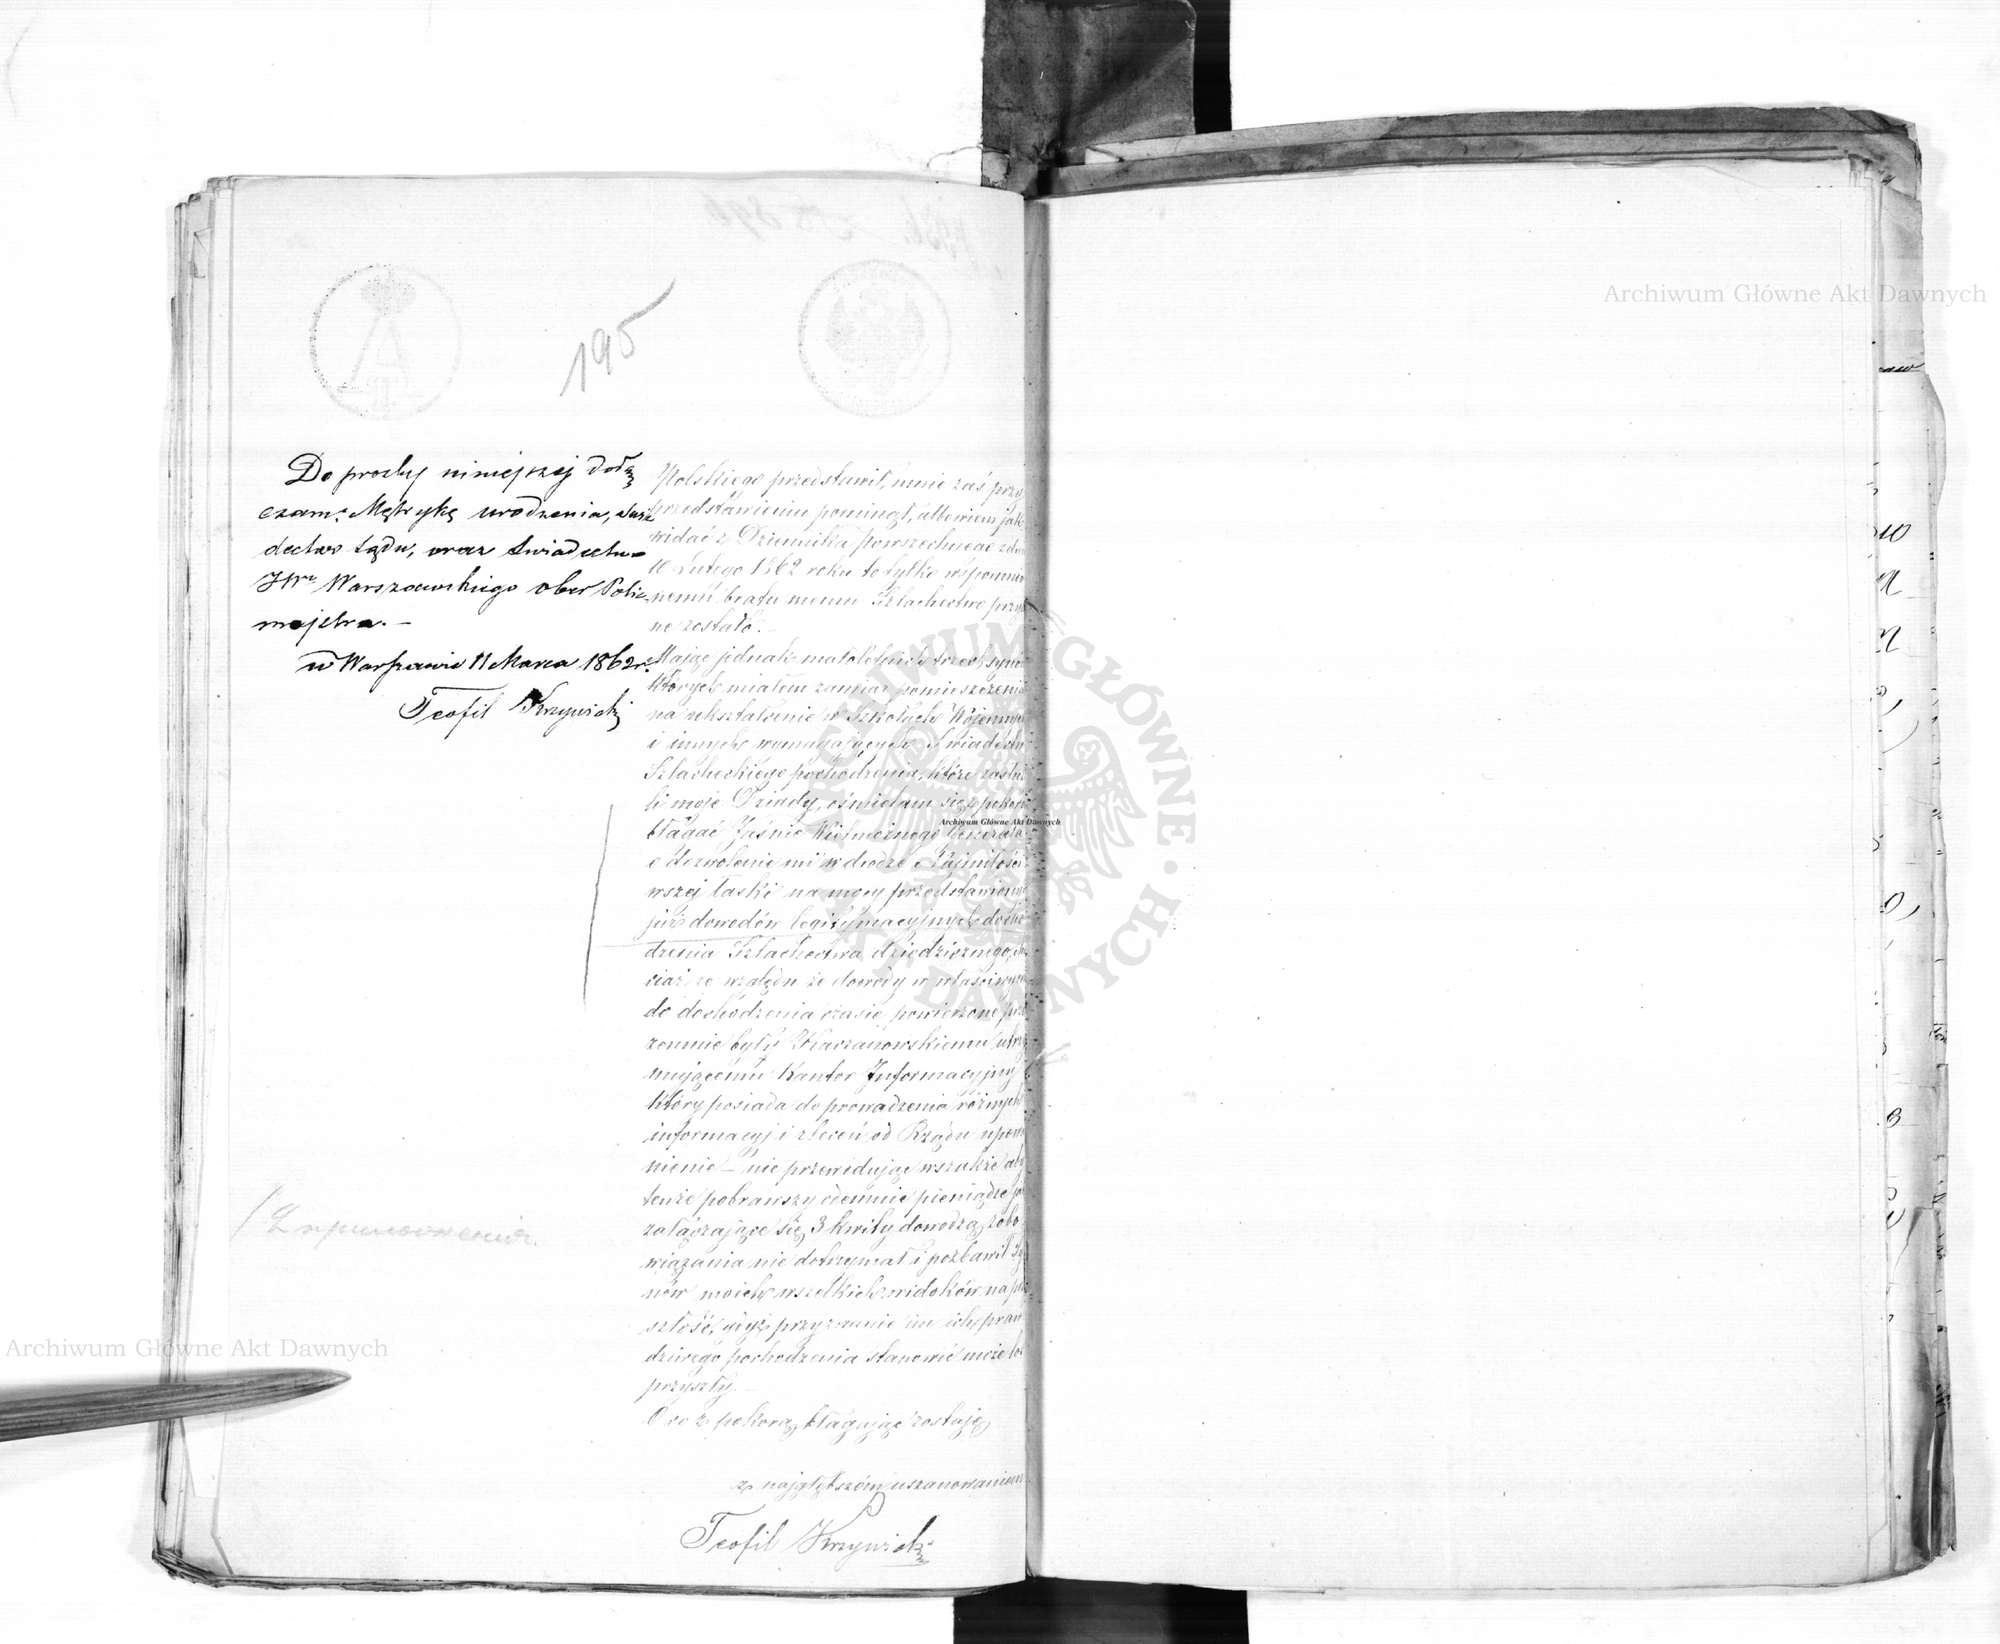 195
Do prośby niniejszej dołą
czam: Metrykę urodzenia, Świa
dectwo Sądu, oraz Świadectwo
JWgo Warszawskiego Ober Polic
majstra. —
w Warszawie 11 Marca 1862 r.
Teofil Krzywicki
Polskiego przedstawił, mnie zaś przy
przedstawieniu pominął, albowiem jak
widać z Dziennika powszechnego z dnia
Lutego 1862 roku to tylko wspomnio
nemu bratu memu Szlachectwo przyzna
ne zostało. —
Mając jednak małoletnich trzech synów
których miałem zamiar pomieszczenia
na ukształcenie w Szkołach Wojennych
i innych wymagających Świadectw
Szlacheckiego pochodzenia, które zasłuży
li moje Dziady, ośmielam się z pokorą
błagać Jaśnie Wielmożnego Generała
o dozwolenie mi w drodze Najmiłości
wszej łaski na mocy przedstawionych
już dowodów legitymacyjnych docho
dzenia Szlachectwa dziedzicznego, cho
ciaż ze względu że dowody w właściwym
do dochodzenia czasie powierzone prze
zemnie były Kaczanowskiemu utrzy
mującemu Kantor Informacyjny
który posiada do prowadzenia różnych
informacyj i zleceń od Rządu upoważ
nienie — nie przewidując wszakże aby
tenże pobrawszy odemnie pieniądze jak
załączające się 3 kwity dowodzą, zobo
wiązania nie dotrzymał i pozbawił Sy
nów moich wszelkich widoków na przy
szłość, gdyż przyznanie im ich praw
dziwego pochodzenia stanowić może los
przyszły. —
O co z pokorą błagając zostaję
z najgłębszém uszanowaniem
Teofil Krzywicki
Archiwum Główne Akt Dawnych
Archiwum Główne Akt Dawnych
Archiwum Główne Akt Dawnych
ARCHIWUM GŁÓWNE AKT DAWNYCH